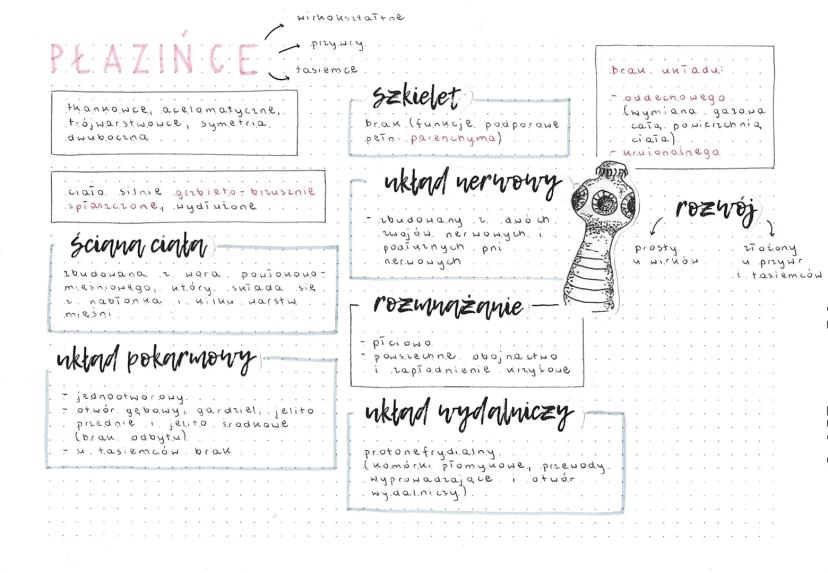 PŁAZIŃCE
wirkokształtne
przywry
tasiemce
tkankowce, acelomatyczne,
trójwarstwowce, symetria
dwuboczna
ciało silnie grzbieto-brzusznie
spłaszczone, wydłużone
ściana ciała
zbudowana z wora powłokowo-
mięśniowego, który składa się
z nabłonka i kilku warstw
mięśni
układ pokarmowy
- jednootworowy
- otwór gębowy, gardziel, jelito
przednie i jelito środkowe
(brak odbytu)
- u tasiemców brak
szkielet
brak (funkcje podporowe
pełni parenchyma)
układ nerwowy
- zbudowany z dwóch
zwojów nerwowych i
podłużnych pni
nerwowych
rozmnażanie
- płciowo
- powszechne obojnactwo
i zapłodnienie krzyżowe
układ wydalniczy
protonefrydialny
(komórki płomykowe, przewody
wyprowadzające i otwór
wydalniczy)
brak układu:
- oddechowego
(wymiana gazowa
całą powierzchnią
ciała)
- krwionośnego
rozwój
prosty
u wirków
złożony
u przywr
i tasiemców